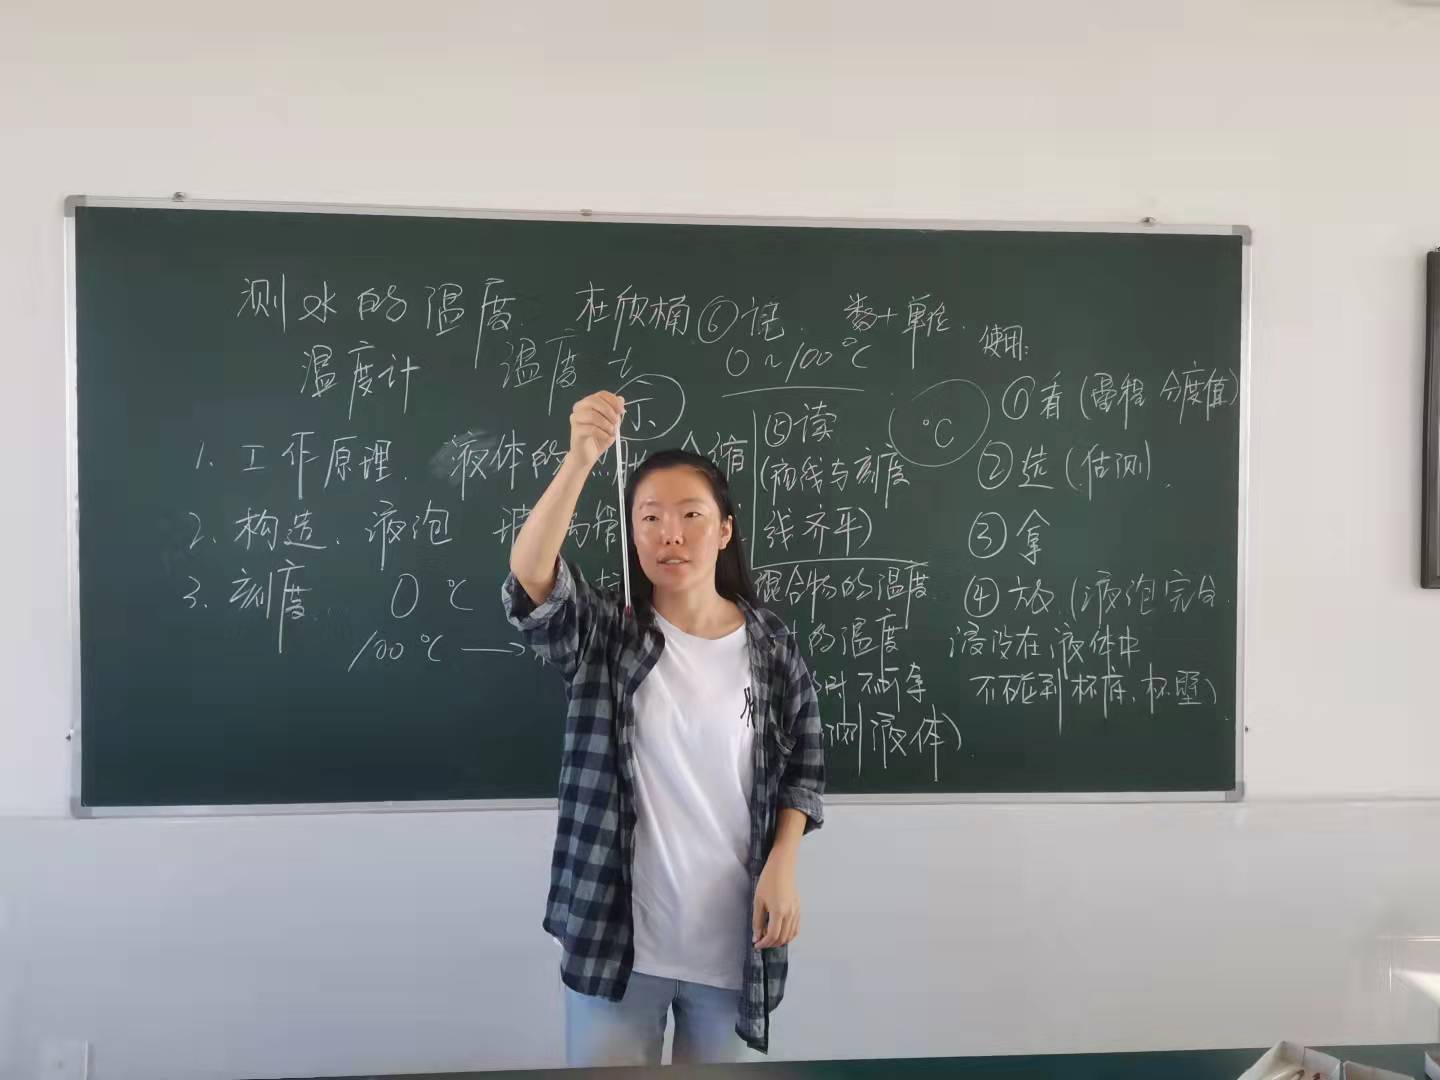 测水的温度. 杜欣桶
温度计 温度 t
示
1. 工作原理. 液体的热胀冷缩
2. 构造. 液泡 玻璃管
3. 刻度. 0℃
100℃ →
⑥记. 数+单位.
0~100℃
⑤读
(视线与刻度
线齐平)
混合物的温度
的温度
时不可拿
测液体).
℃
使用:
①看(量程 分度值)
②选(估测).
③拿
④放.(液泡完全
浸没在液体中
不碰到杯底、杯壁).